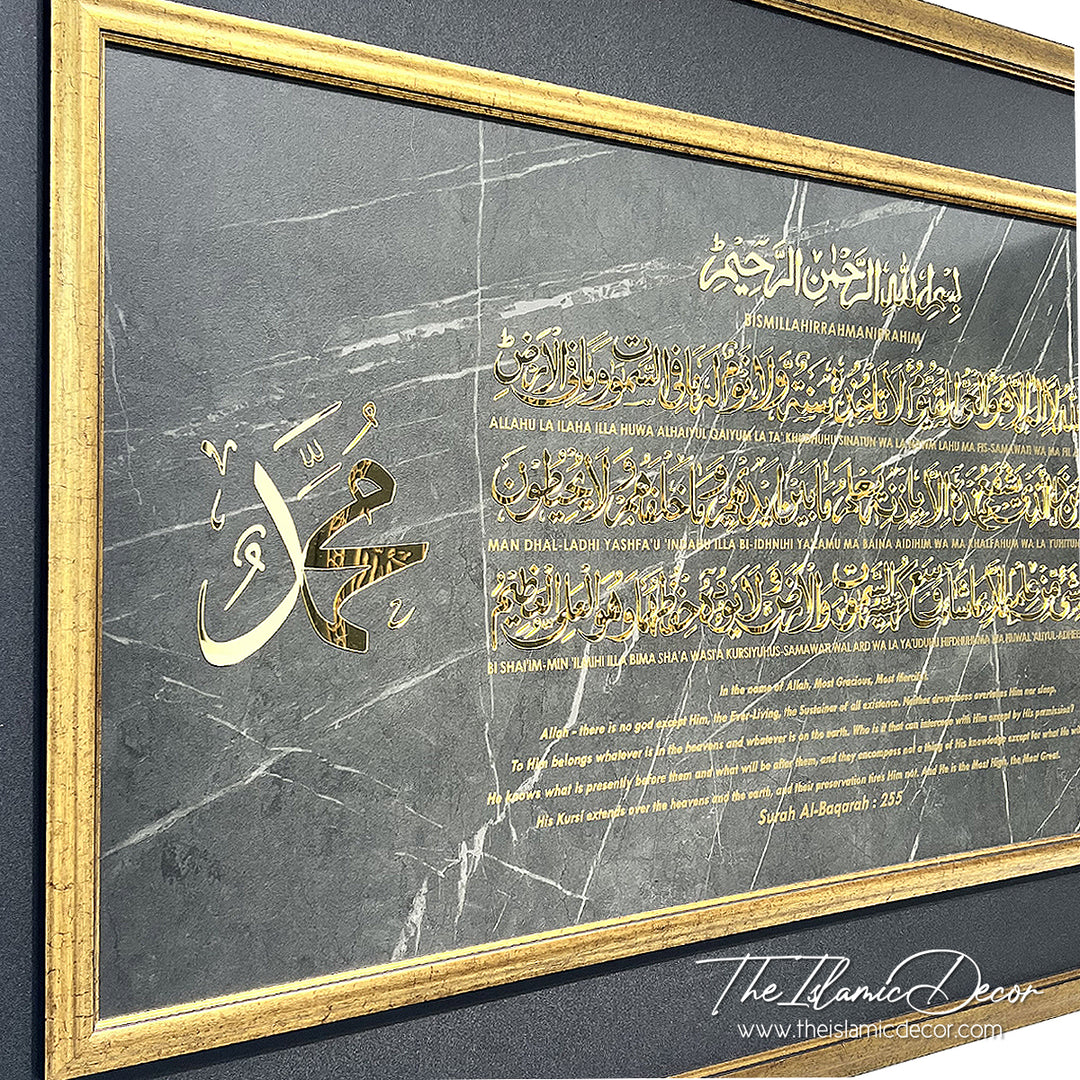 محمد
بِسْمِ اللّٰهِ الرَّحْمٰنِ الرَّحِيْمِ
BISMILLAHIRRAHMANIRRAHIM
اللّٰهُ لَا اِلٰهَ اِلَّا هُوَ الْحَيُّ الْقَيُّوْمُ لَا تَأْخُذُهٗ سِنَةٌ وَّلَا نَوْمٌ لَهٗ مَا فِى السَّمٰوٰتِ وَمَا فِى الْاَرْضِ
ALLAHU LA ILAHA ILLA HUWA ALHAIYUL QAIYUM LA TA' KHUDHUHU SINATUN WA LA NAWM LAHU MA FIS-SAMAWATI WA MA FIL
الَّذِيْ يَشْفَعُ عِنْدَهٗ اِلَّا بِاِذْنِهٖ يَعْلَمُ مَا بَيْنَ اَيْدِيْهِمْ وَمَا خَلْفَهُمْ وَلَا يُحِيْطُوْنَ
MAN DHAL-LADHI YASHFA'U 'INDAHU ILLA BI-IDHNIHI YA'LAMU MA BAINA AIDIHIM WA MA KHALFAHUM WA LA YUHITUN
بِشَيْءٍ مِّنْ عِلْمِهٖ اِلَّا بِمَا شَآءَ وَسِعَ كُرْسِيُّهُ السَّمٰوٰتِ وَالْاَرْضَ وَلَا يَـُٔوْدُهٗ حِفْظُهُمَا وَهُوَ الْعَلِيُّ الْعَظِيْمُ
BI SHAI'IM-MIN 'ILMIHI ILLA BIMA SHA'A WASI'A KURSIYUHUS-SAMAWATI WAL ARD WA LA YA'UDUHU HIFDHUHUMA WA HUWAL 'ALIYUL-ADHEE
In the name of Allah, Most Gracious, Most Merciful.
Allah - there is no god except Him, the Ever-Living, the Sustainer of all existence. Neither drowsiness overtakes Him nor sleep.
To Him belongs whatever is in the heavens and whatever is on the earth. Who is it that can intercede with Him except by His permission?
He knows what is presently before them and what will be after them, and they encompass not a thing of His knowledge except for what He wi
His Kursi extends over the heavens and the earth, and their preservation tires Him not. And He is the Most High, the Most Great.
Surah Al-Baqarah : 255
TheIslamicDecor
www.theislamicdecor.com